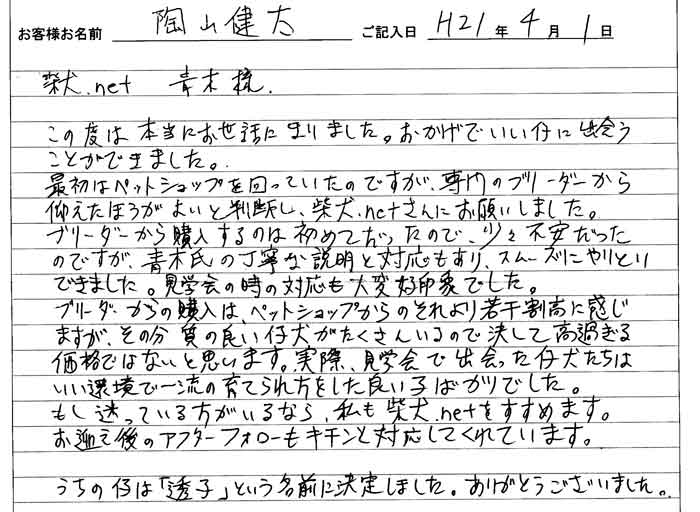 お客様お名前 陶山健太 ご記入日 H21年4月1日
柴犬.net 青木様.
この度は本当にお世話になりました。おかげでいい仔に出会う
ことができました。
最初はペットショップを回っていたのですが、専門のブリーダーから
迎えたほうがよいと判断し、柴犬.netさんにお願いしました。
ブリーダーから購入するのは初めてだったので、少々不安だった
のですが、青木氏の丁寧な説明と対応もあり、スムーズにやりとり
できました。見学会の時の対応も大変好印象でした。
ブリーダーからの購入は、ペットショップからのそれより若干割高に感じ
ますが、その分質の良い仔犬がたくさんいるので決して高過ぎる
価格ではないと思います。実際、見学会で出会った仔犬たちは
いい環境で一流の育てられ方をした良い子ばかりでした。
もし迷っている方がいるなら、私も柴犬.netをすすめます。
お迎え後のアフターフォローもキチンと対応してくれています。
うちの仔は「透子」という名前に決定しました。ありがとうございました。